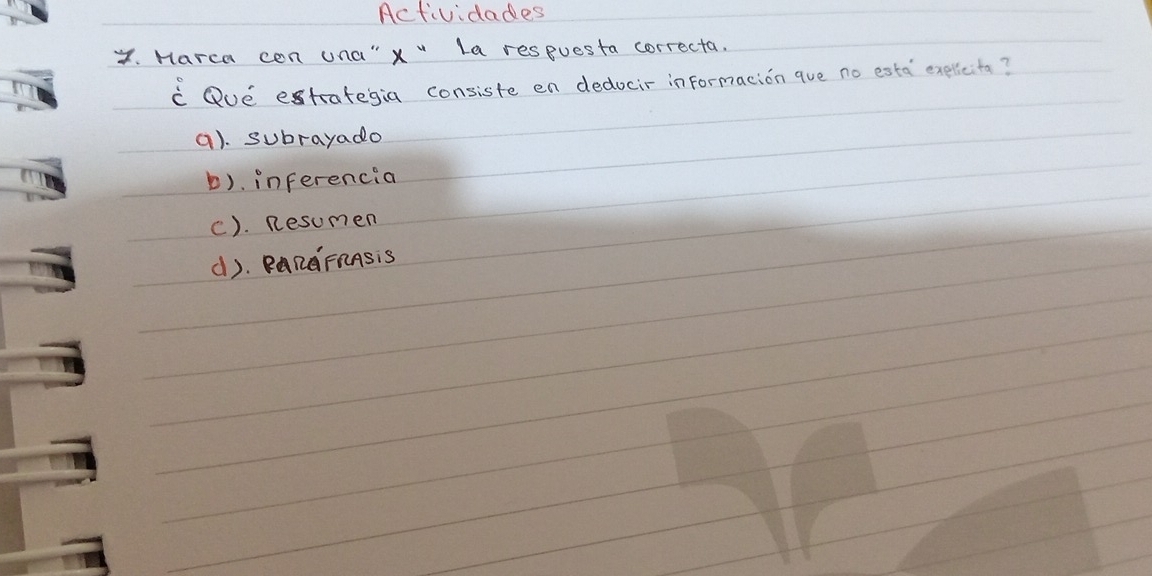 Actividades
7. Marca con una "x" La respuesta correcta.
¿Qué estrategia consiste en deducir información que no está explicita?
a). subrayado
b). inferencia
c). Resumen
d). PARáFRASis